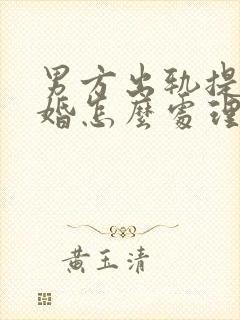 男方出轨提
婚怎麼處理
黄玉清